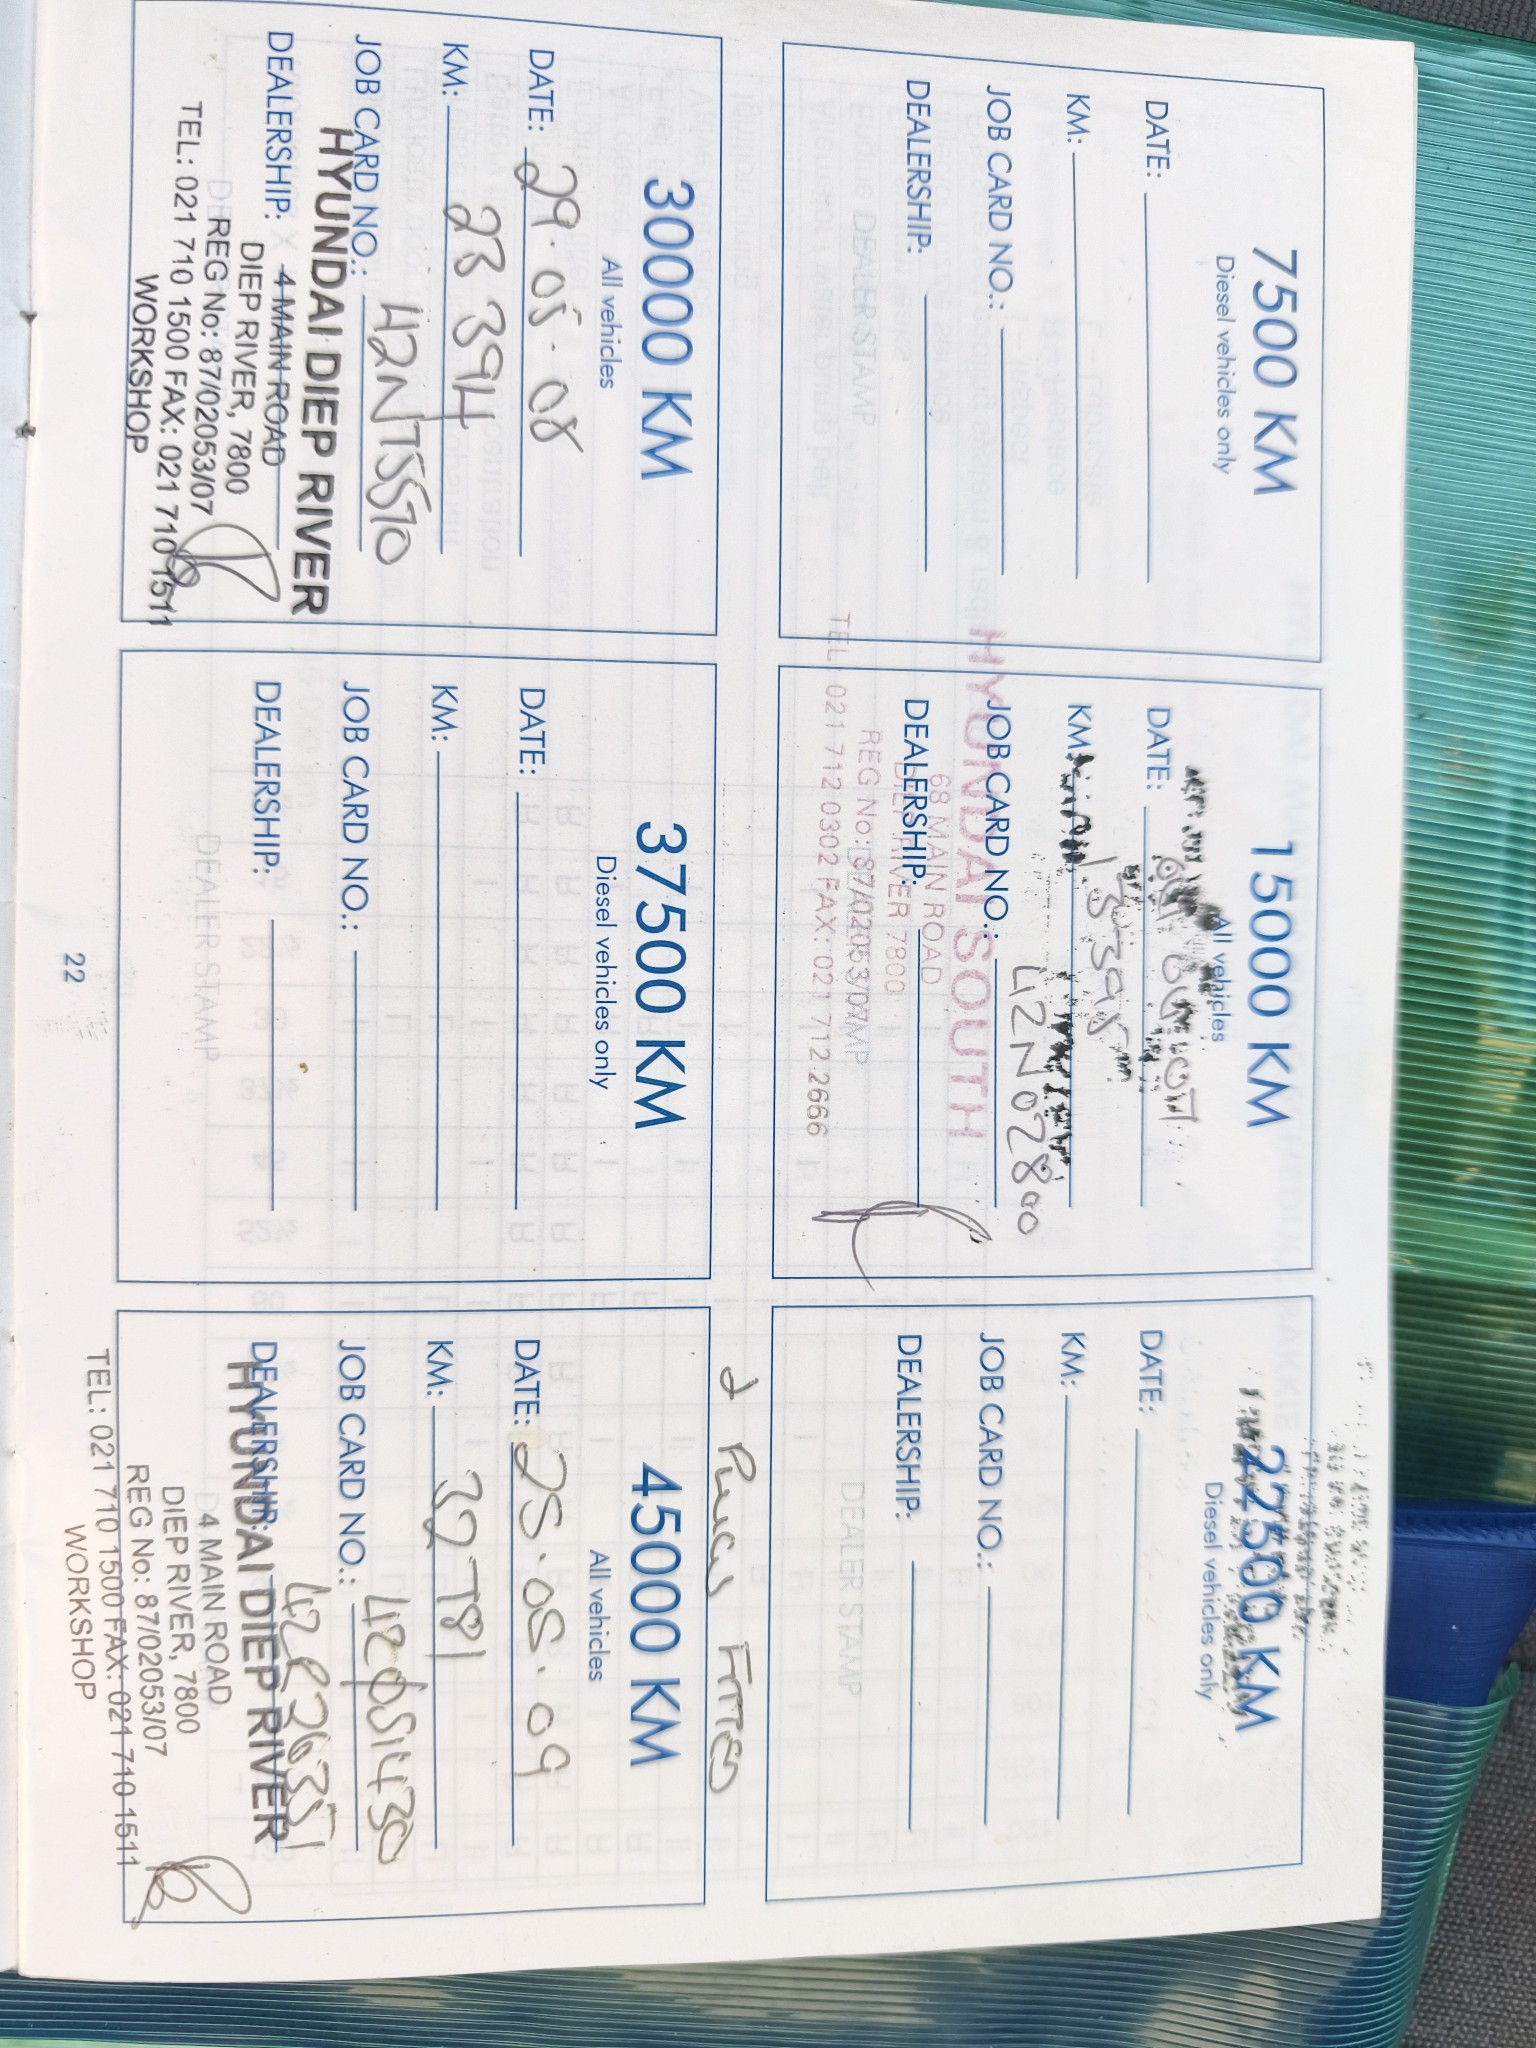 7500 KM
Diesel vehicles only
DATE:
KM:
JOB CARD NO.:
DEALERSHIP:
DEALER STAMP
15000 KM
All vehicles
DATE:
KM: 13395
JOB CARD NO.: 42N02800
HYUNDAI SOUTH
DEALERSHIP:
68 MAIN ROAD
DIEP RIVER 7800
REG No: 87/02053/07
TEL: 021 712 0302 FAX: 021 712 2666
22500 KM
Diesel vehicles only
DATE:
KM:
JOB CARD NO.:
DEALERSHIP:
DEALER STAMP
30000 KM
All vehicles
DATE: 29.05.08
KM: 23 394
JOB CARD NO.:
HYUNDAI DIEP RIVER
DEALERSHIP: 4 MAIN ROAD
DIEP RIVER, 7800
REG No: 87/02053/07
TEL: 021 710 1500 FAX: 021 710 1511
WORKSHOP
37500 KM
Diesel vehicles only
DATE:
KM:
JOB CARD NO.:
DEALERSHIP:
DEALER STAMP
2
45000 KM
All vehicles
DATE: 25.05.09
KM: 32781
JOB CARD NO.:
DEALERSHIP:
HYUNDAI DIEP RIVER
4 MAIN ROAD
DIEP RIVER, 7800
REG No: 87/02053/07
TEL: 021 710 1500 FAX: 021 710 1511
WORKSHOP
22